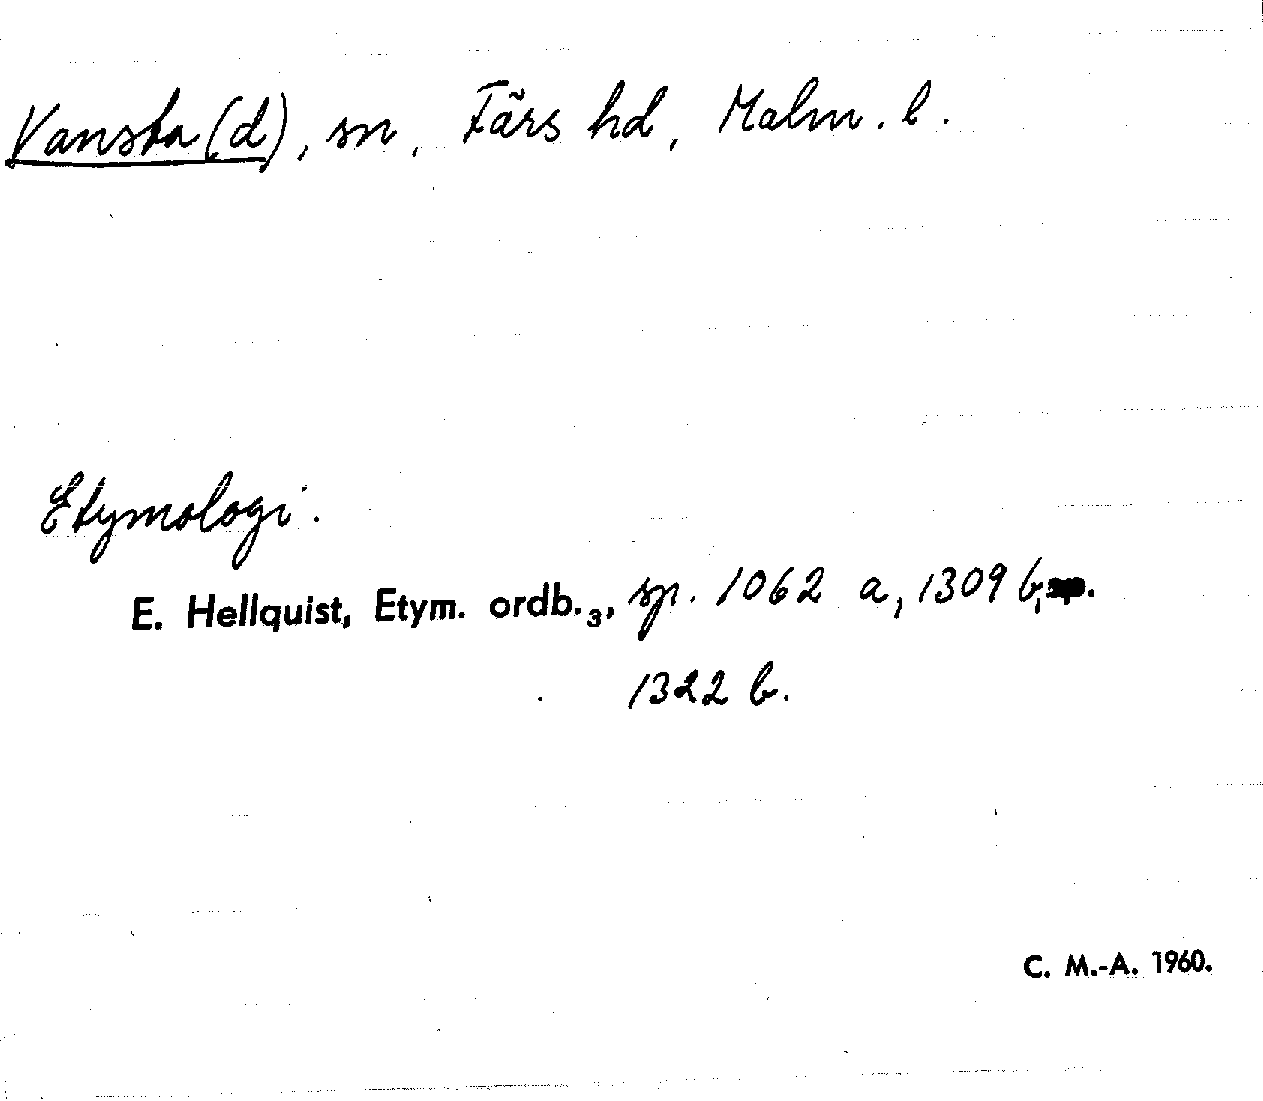 Vansta(d), sn, Färs hd, Malm. l.
Etymologi.
E. Hellquist, Etym. ordb.₃, sp. 1062 a, 1309 b,
1322 b.
C. M.-A. 1960.